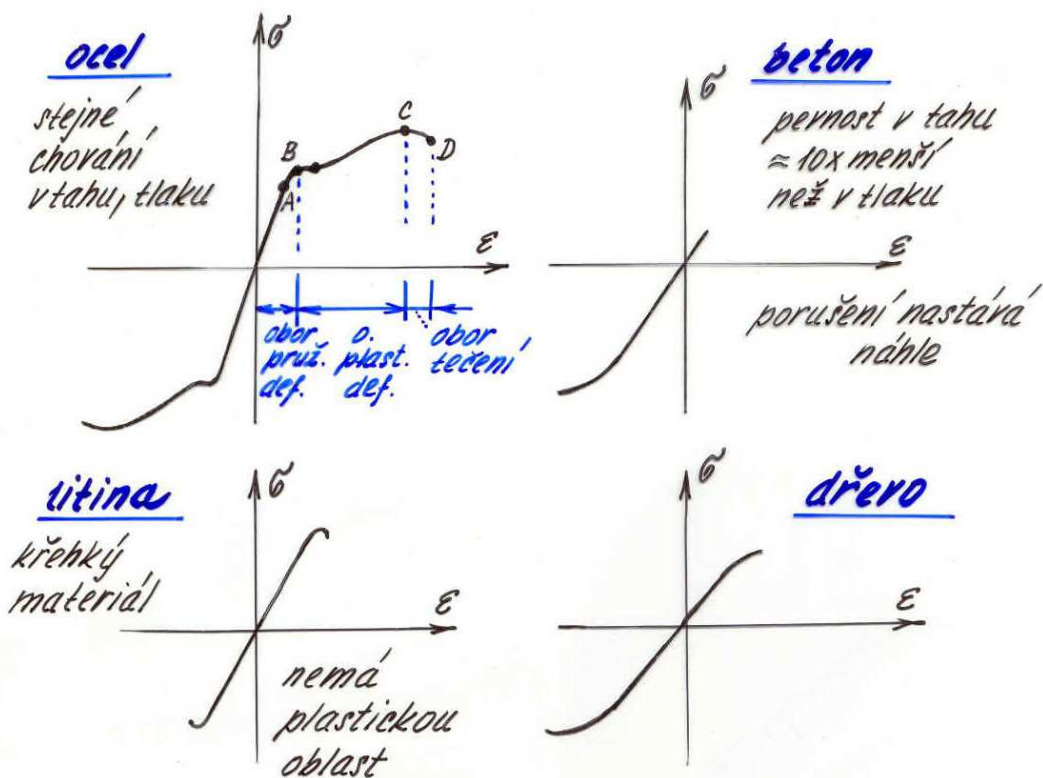 ocel
stejné
chování
v tahu, tlaku
σ
A
B
C
D
ε
obor
pruž.
def.
o.
plast.
def.
obor
tečení
beton
σ
pevnost v tahu
≈ 10x menší
než v tlaku
ε
porušení nastává
náhle
litina
křehký
materiál
σ
ε
nemá
plastickou
oblast
dřevo
σ
ε